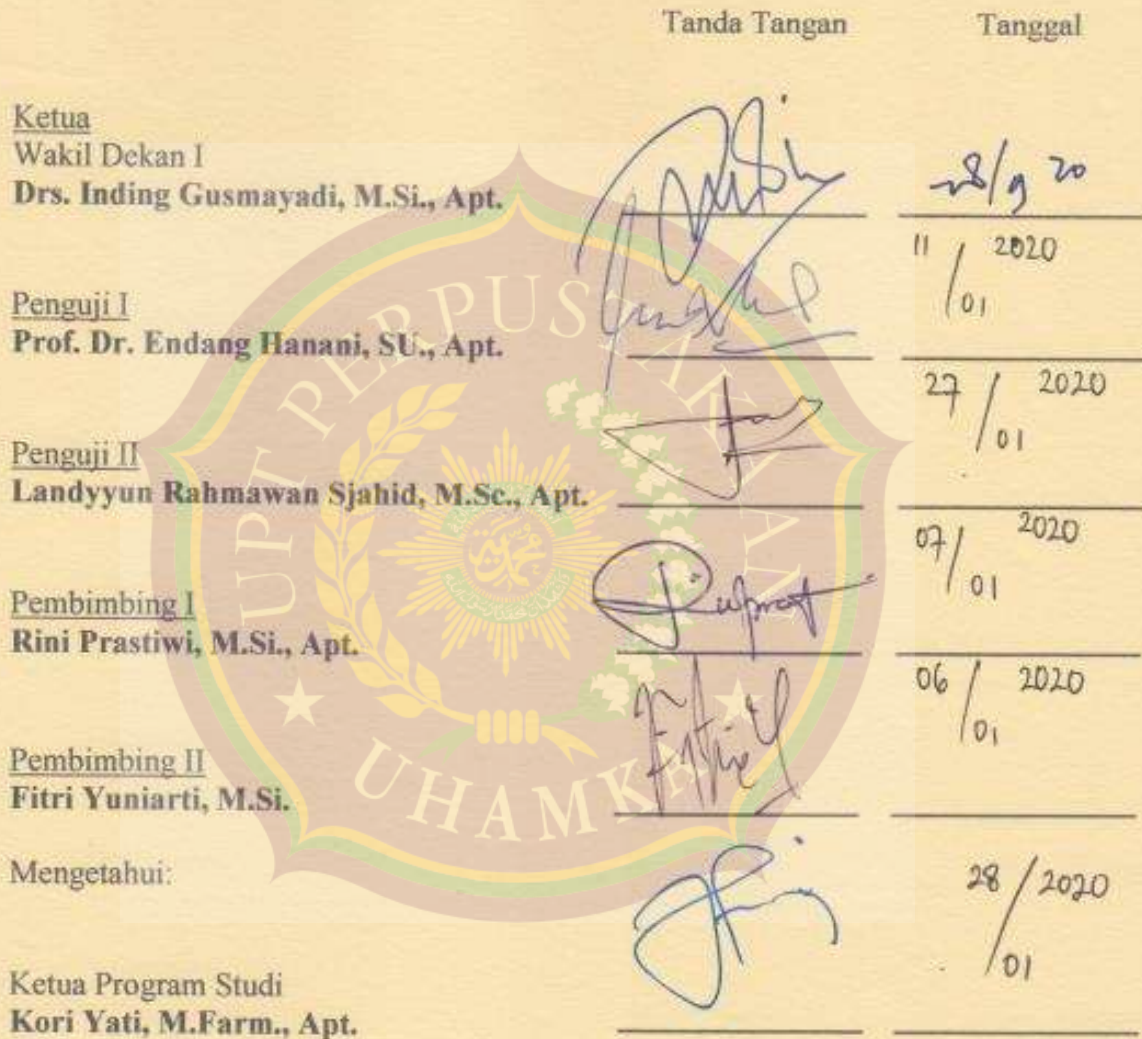 Tanda Tangan Tanggal
Ketua
Wakil Dekan I
Drs. Inding Gusmayadi, M.Si., Apt.
28/9 20
Penguji I
Prof. Dr. Endang Hanani, SU., Apt.
11 / 01 2020
Penguji II
Landyyun Rahmawan Sjahid, M.Sc., Apt.
27 / 01 2020
Pembimbing I
Rini Prastiwi, M.Si., Apt.
07 / 01 2020
Pembimbing II
Fitri Yuniarti, M.Si.
06 / 01 2020
Mengetahui:
28 / 01 2020
Ketua Program Studi
Kori Yati, M.Farm., Apt.
UPT PERPUSTAKAAN
UHAMKA